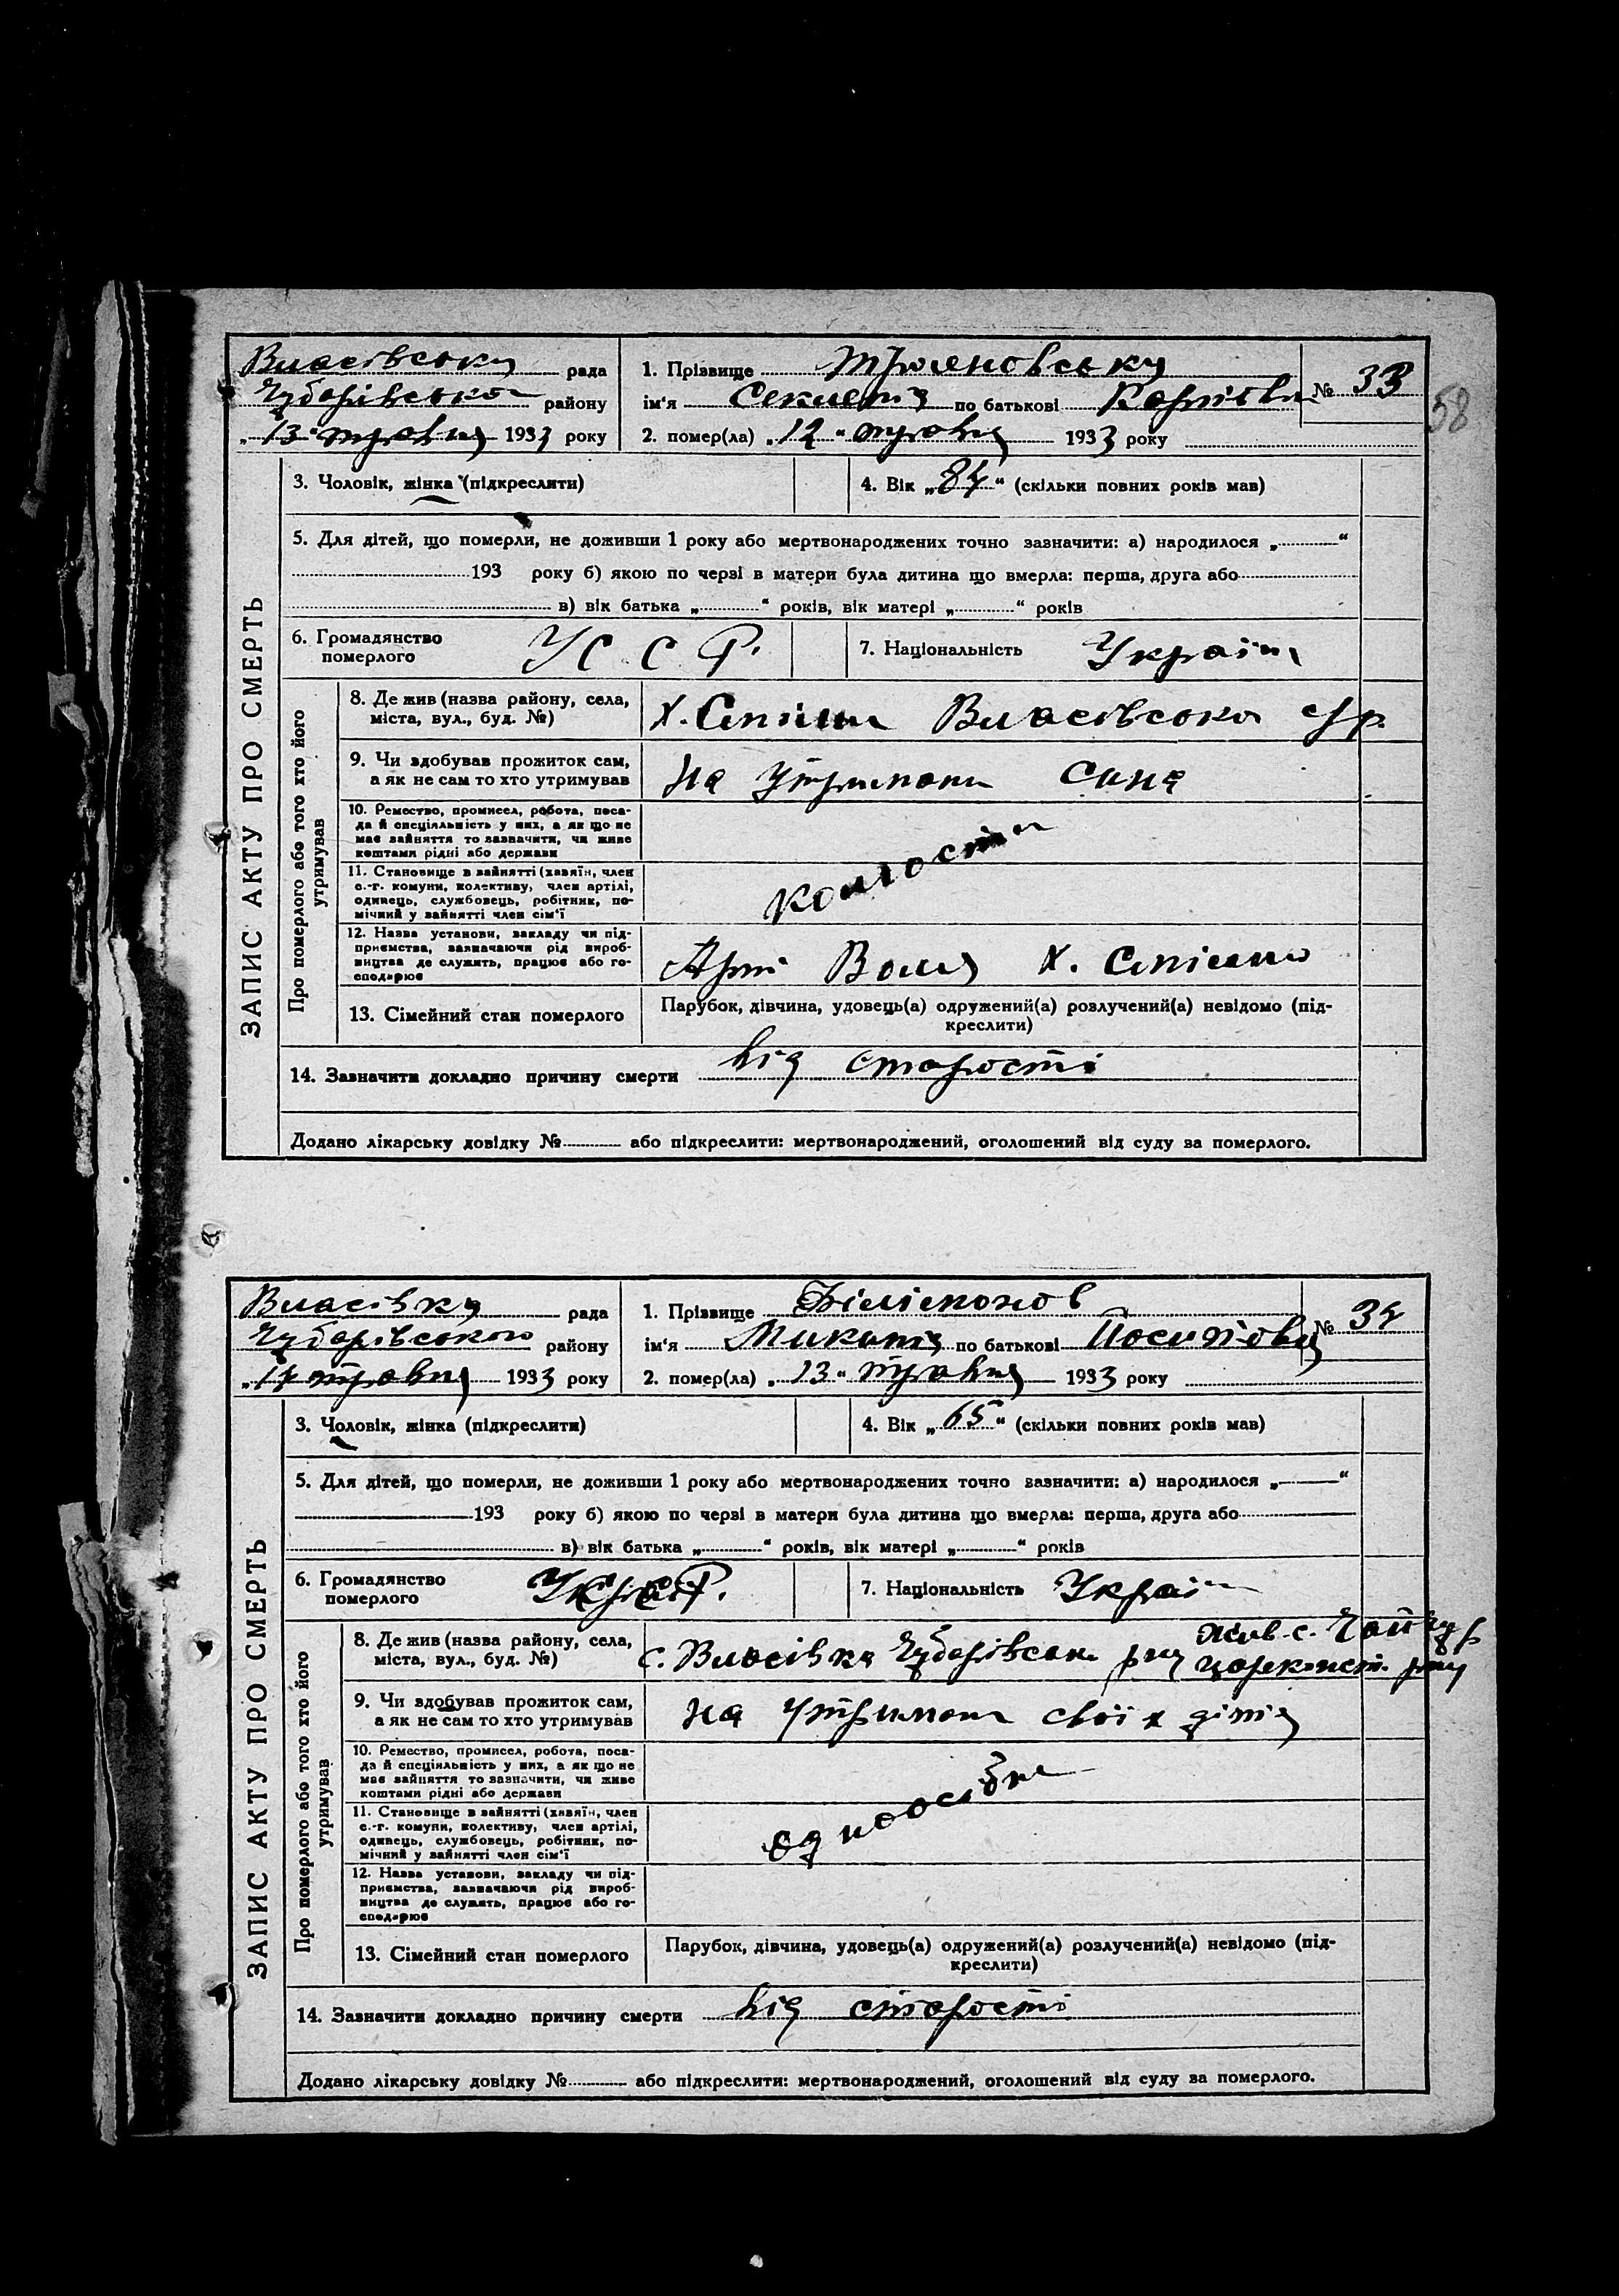 58
Власівська рада
Чубарівського району
„13“ травня 1933 року
1. Прізвище Трояновська
ім'я по батькові Карпівна
№ 33
2. помер(ла) „12“ травня 1933 року
ЗАПИС АКТУ ПРО СМЕРТЬ
3. Чоловік, жінка (підкреслити)
4. Вік „84“ (скільки повних років мав)
5. Для дітей, що померли, не доживши 1 року або мертвонароджених точно зазначити: а) народилося „ “
193 року б) якою по черзі в матери була дитина що вмерла: перша, друга або
в) вік батька „ “ років, вік матері „ “ років
6. Громадянство
померлого
УССР.
7. Національність Україн
Про померлого або того хто його
утримував
8. Де жив (назва району, села,
міста, вул., буд. №)
Х. Власівська с/р.
9. Чи здобував прожиток сам,
а як не сам то хто утримував
На утриманн сина
10. Ремество, промисел, робота, поса-
да й спеціяльність у них, а як що не
має зайняття то зазначити, чи живе
коштами рідні або держави
11. Становище в зайнятті (хазяїн, член
с.-г. комуни, колективу, член артілі,
одинець, службовець, робітник, по-
мічний у зайнятті член сім'ї
12. Назва установи, закладу чи під-
приємства, зазначаючи рід вироб-
ництва де служить, працює або го-
сподарює
Арті Воля Х.
13. Сімейний стан померлого
Парубок, дівчина, удовець(а) одружений(а) розлучений(а) невідомо (під-
креслити)
14. Зазначити докладно причину смерти від старості
Додано лікарську довідку № або підкреслити: мертвонароджений, оголошений від суду за померлого.
Власівка рада
Чубарівського району
„14 травня 1933 року
1. Прізвище Філімонов
ім'я Микита по батькові Йосипович
№ 34
2. помер(ла) „13“ травня 1933 року
ЗАПИС АКТУ ПРО СМЕРТЬ
3. Чоловік, жінка (підкреслити)
4. Вік „65“ (скільки повних років мав)
5. Для дітей, що померли, не доживши 1 року або мертвонароджених точно зазначити: а) народилося „ “
193 року б) якою по черзі в матери була дитина що вмерла: перша, друга або
в) вік батька „ “ років, вік матері „ “ років
6. Громадянство
померлого
7. Національність Україн
Про померлого або того хто його
утримував
8. Де жив (назва району, села,
міста, вул., буд. №)
с. Власівка Чубарівськ. р-ну
9. Чи здобував прожиток сам,
а як не сам то хто утримував
На утриманн своїх дітів
10. Ремество, промисел, робота, поса-
да й спеціяльність у них, а як що не
має зайняття то зазначити, чи живе
коштами рідні або держави
11. Становище в зайнятті (хазяїн, член
с.-г. комуни, колективу, член артілі,
одинець, службовець, робітник, по-
мічний у зайнятті член сім'ї
одноосібне
12. Назва установи, закладу чи під-
приємства, зазначаючи рід вироб-
ництва де служить, працює або го-
сподарює
13. Сімейний стан померлого
Парубок, дівчина, удовець(а) одружений(а) розлучений(а) невідомо (під-
креслити)
14. Зазначити докладно причину смерти від старості
Додано лікарську довідку № або підкреслити: мертвонароджений, оголошений від суду за померлого.